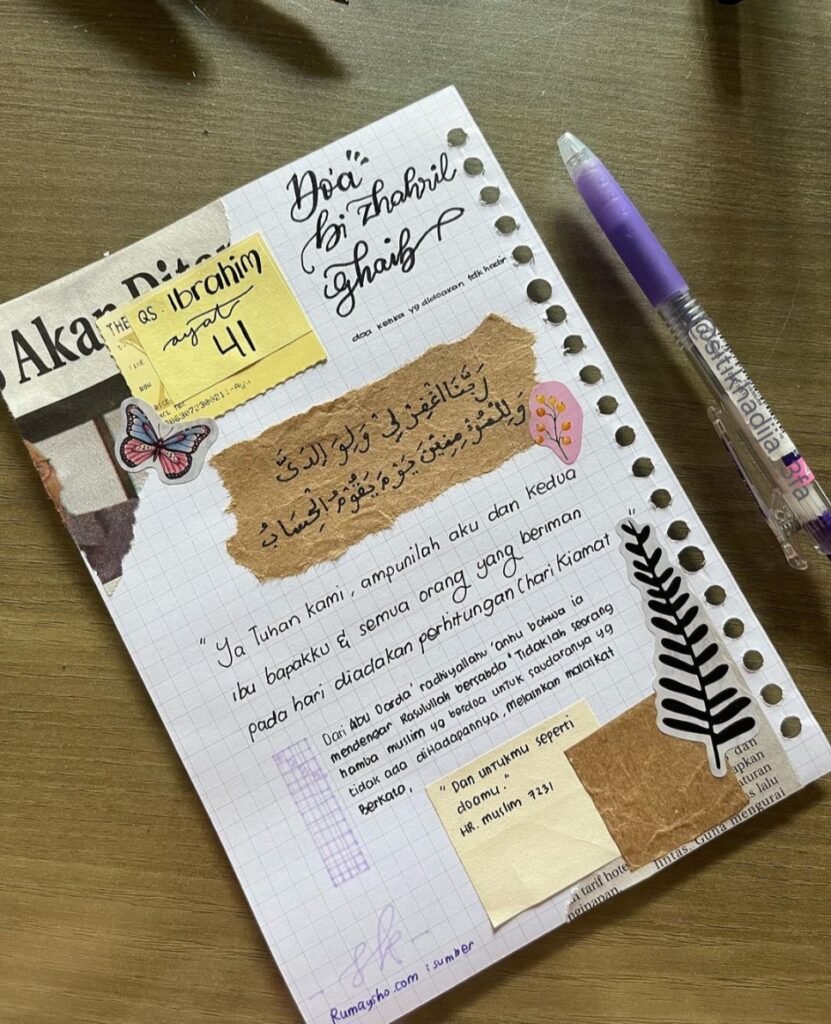 Do'a
bi zhahril
ghaib
doa ketika yg didoakan tdk hadir
Akan
THE
QS. Ibrahim
ayat
41
رَبَّنَا اغْفِرْ لِيْ وَلِوَالِدَيَّ
وَلِلْمُؤْمِنِيْنَ يَوْمَ يَقُوْمُ الْحِسَابُ
" Ya Tuhan kami, ampunilah aku dan kedua
ibu bapakku & semua orang yang beriman
pada hari diadakan perhitungan (hari Kiamat "
Dari Abu Darda' radhiyallahu 'anhu bahwa ia
mendengar Rasulullah bersabda " Tidaklah seorang
hamba muslim yg berdoa untuk saudaranya yg
tidak ada dihadapannya, Melainkan malaikat
Berkata,
" Dan untukmu seperti
doamu."
HR. Muslim 7231
dan
apkan
aturan
s lalu
lintas. Guna mengurai
n tarif hote
nginapan.
- sk -
Rumaysho.com : sumber